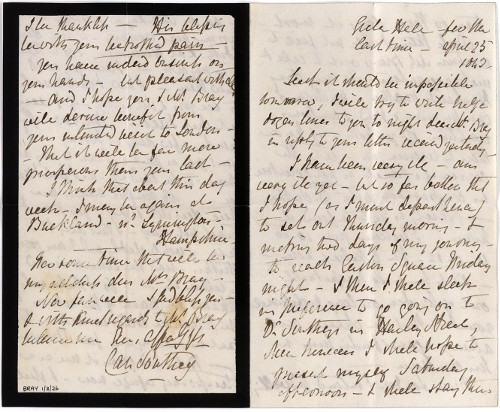 Greta Hall for the
last time April 25
1843.
Lest it should be impossible
tomorrow, I will try to write half a
dozen lines to you to night dearest Mrs Bray
in reply to your letter received yesterday
I have been very ill – am
very ill yet – but so far better that
I hope (as I must depart hence)
to set out Thursday morning – &
making two days of my journey
to reach Euston Square Friday
night – Then I shall sleep
in preference to going on to
Dr Southey's in Harley Street
I shall hope to
present myself Saturday
afternoon – & shall stay there
I be thankful – His blessing
be with you
You have indeed on
your hands – but pleasant withal
– and I hope you & Mr Bray
will derive benefit from
your intended visit to London –
That it will be far more
prosperous than your last –
I think that about this day
week – I may be again at
Buckland – nr Lymington –
Hampshire
for some time that will be
my address dear Mrs Bray –
Now farewell – God bless you –
& with kind regards to Mr Bray
believe me Yrs affectly
Car. Southey
BRAY 1/2/26